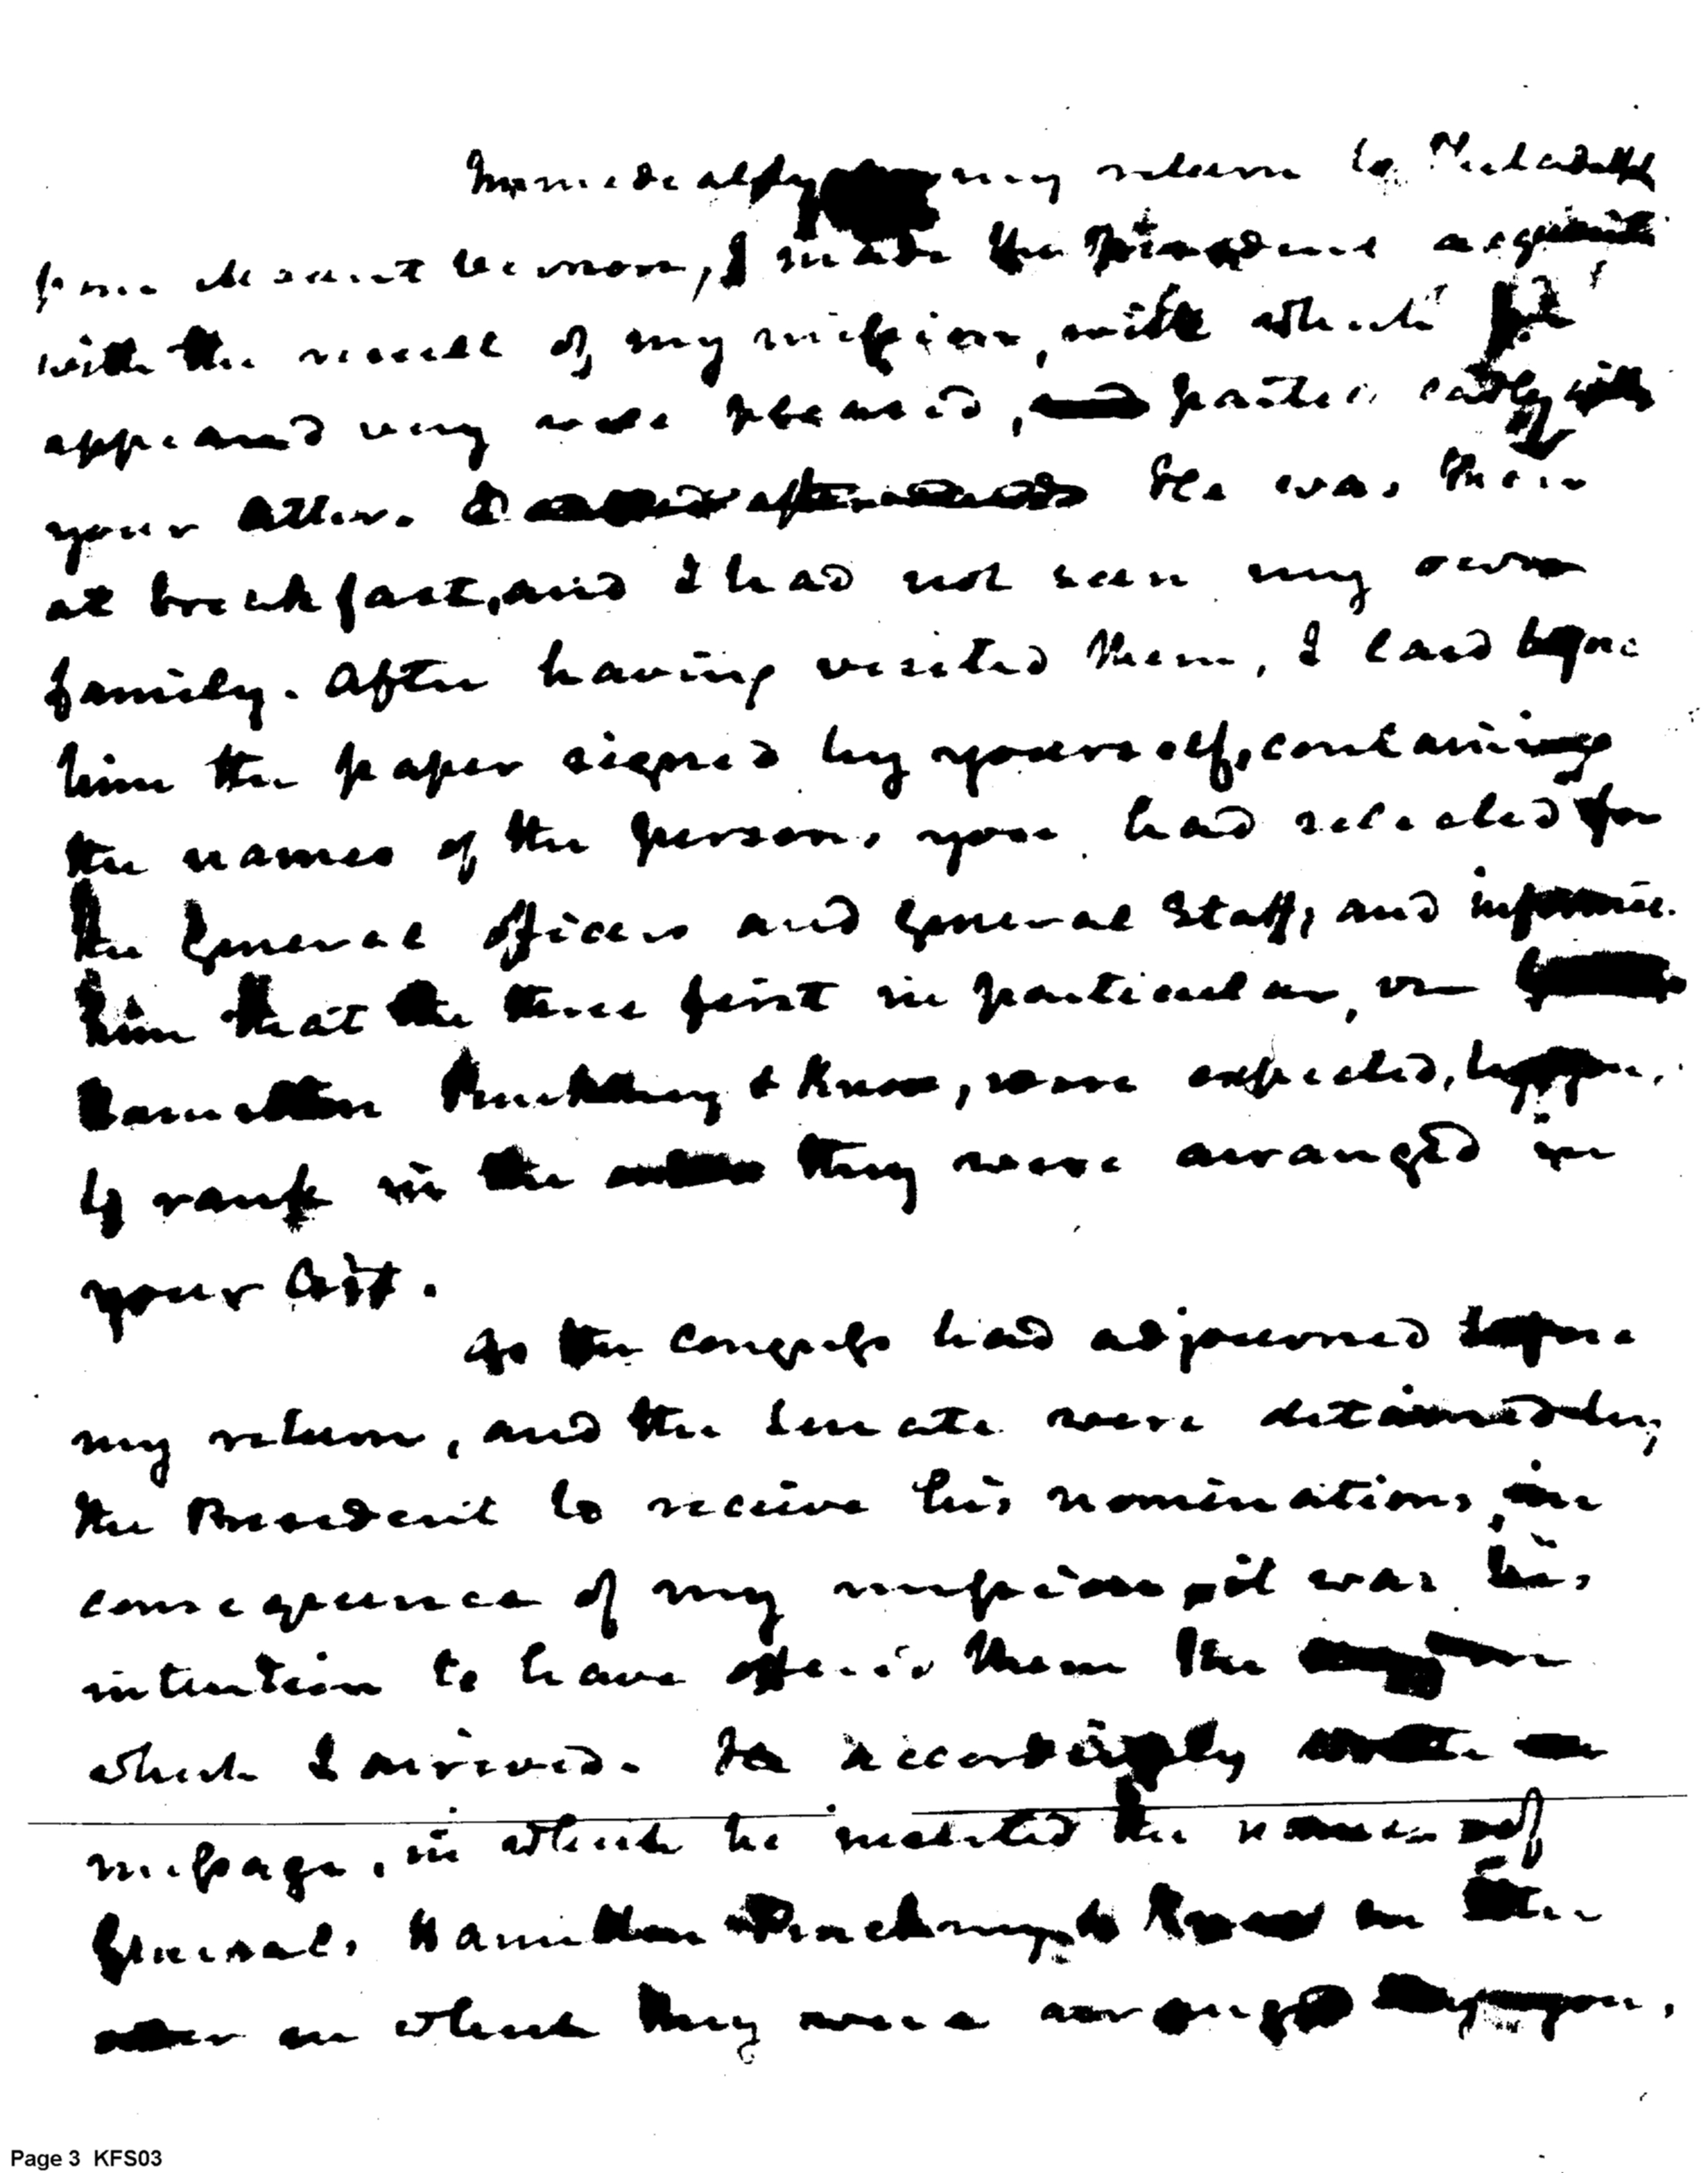 Immediatly my return to Philadelp
from Mount Vernon, I made the President acquainted
with the result of my mission, with which he
appeared very well pleased, particularly with
your letter. He was then
at breakfast, and I had not seen my own
family. After having visited them, I laid before
him the paper signed by yourself, containing
the names of the persons you had selected for
the General officers and General Staff, and informed
him that the three first in particular, viz
Hamilton Pinckney & Knox, were expected, by you,
to rank in the they were arranged in
your list.
As the Congress had adjourned before
my return, and the Senate were detained by
the President to receive his nominations in
consequence of my mission, it was his
intention to have offered them the
which I arrived. He accordingly
message, in which he inserted the names of
Generals Hamilton Pinckney & Knox in the
order in which they were arranged by you,
Page 3 KFS03